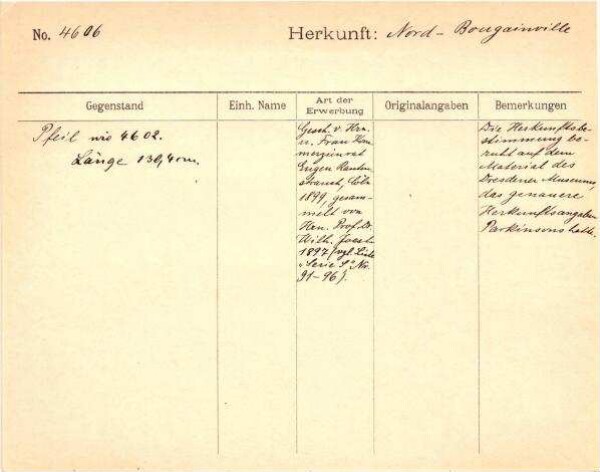 No. 4606 Herkunft: Nord-Bougainville
Gegenstand Einh. Name Art der Erwerbung Originalangaben Bemerkungen
Pfeil wie 4602.
Länge 130,4 cm.
Gesch. v. Hrn.
u. Frau Kom-
merzienrat
Eugen Rauten-
strauch, Cöln
1899, gesam-
melt von
Hrn. Prof. Dr.
Wilh. Joest
1897 (vgl. Liste
"Serie S" No.
91-96).
Die Herkunftsbe-
stimmung be-
ruht auf dem
Material des
Dresdener Museums,
das genauere
Herkunftsangaben
Parkinsons hatte.